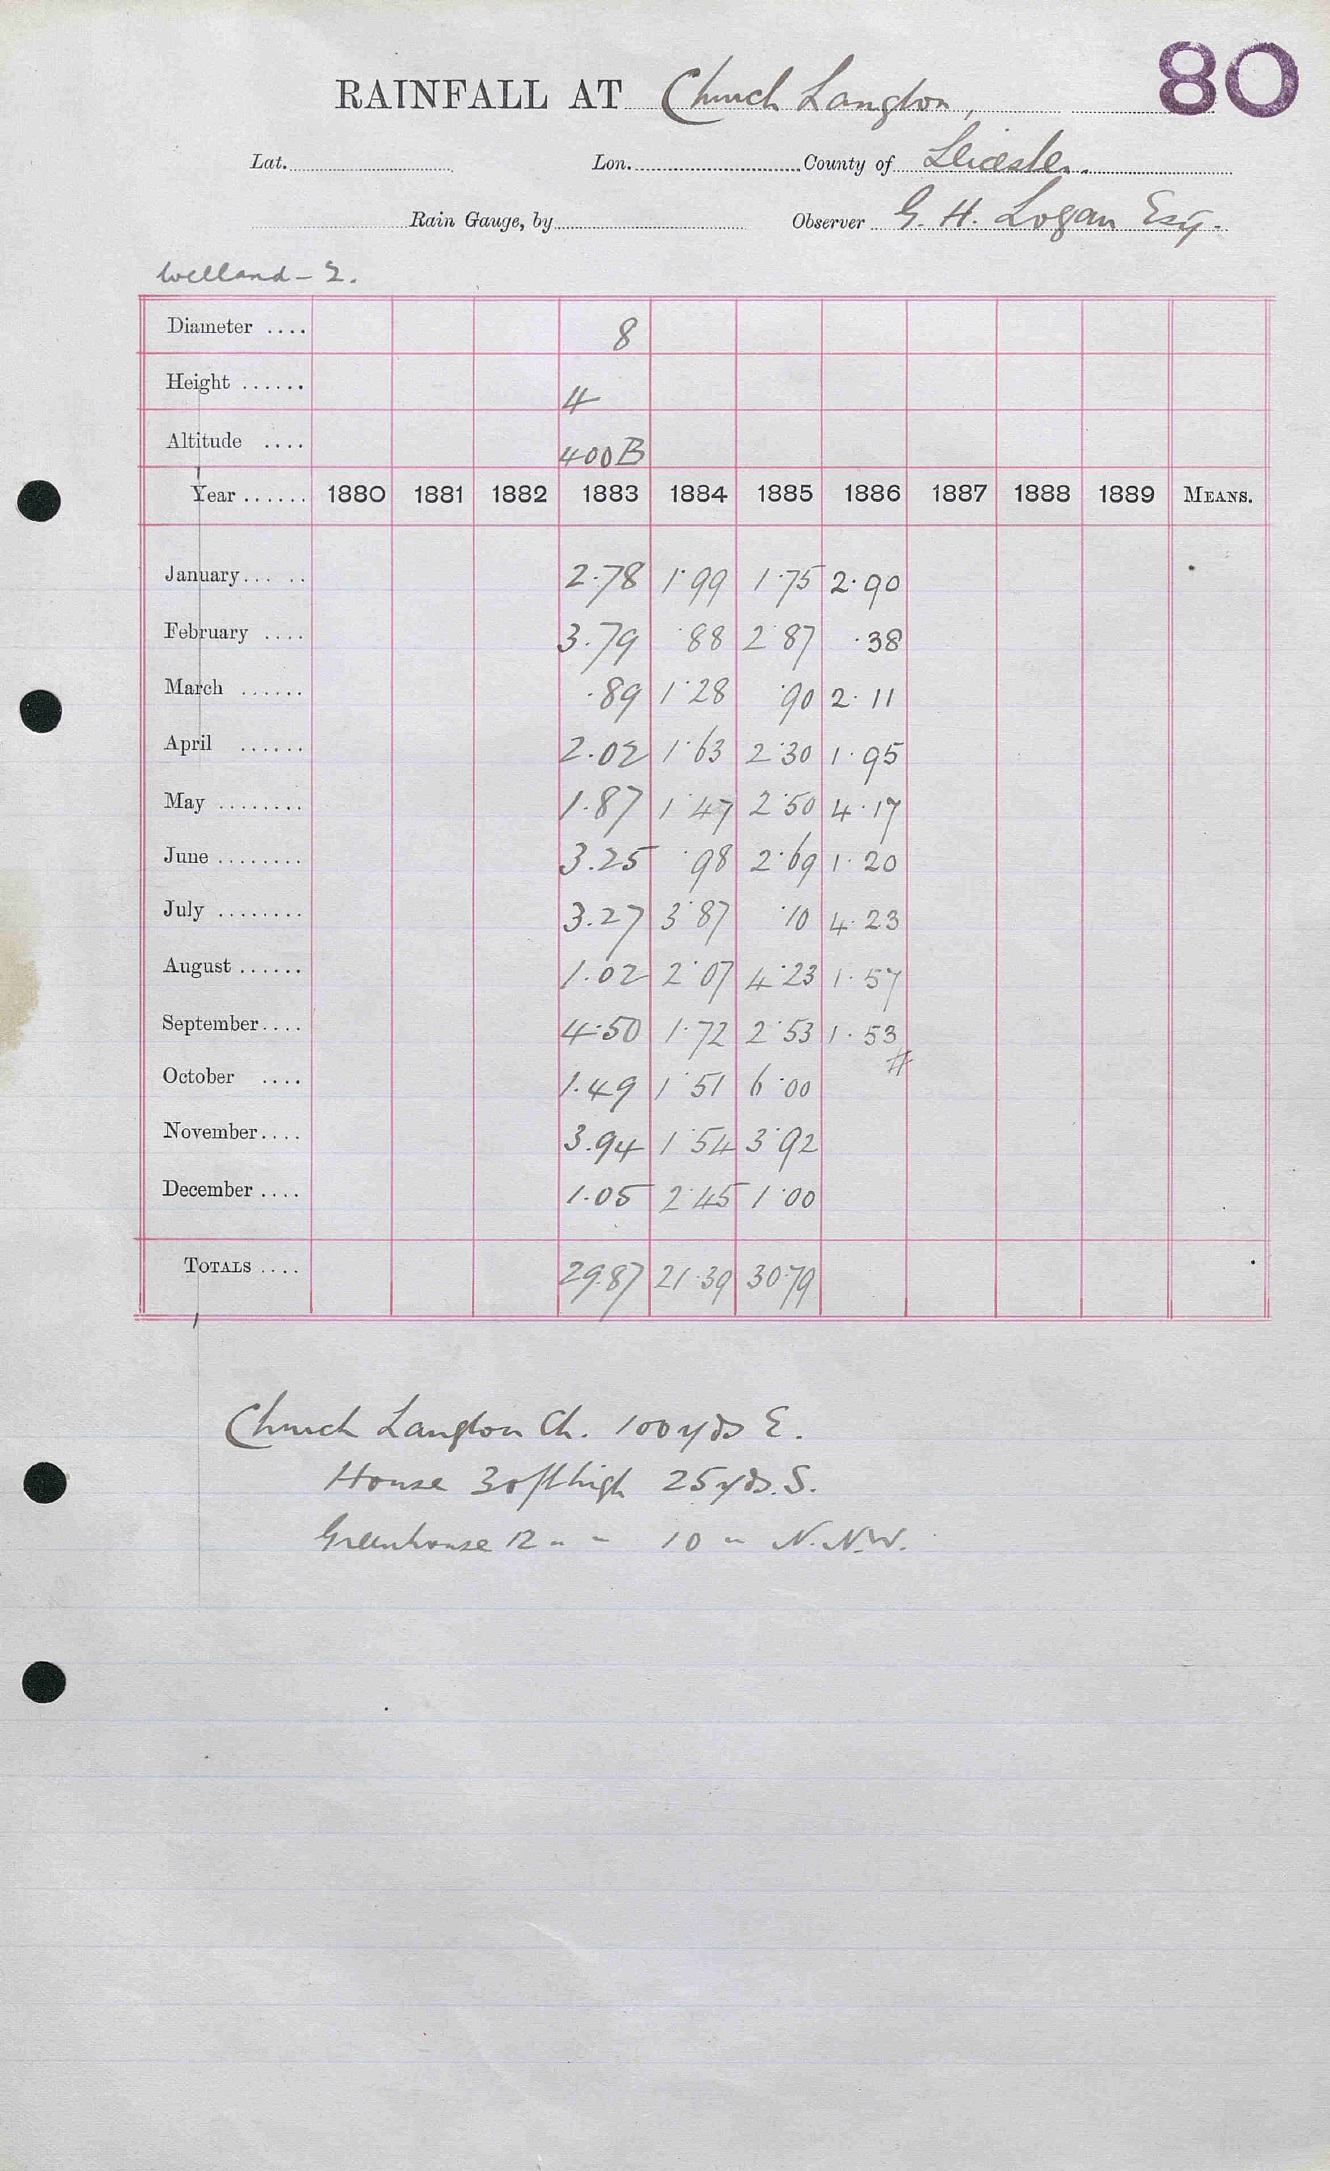 80
RAINFALL AT Church Langton,
Lat. Lon. County of Leicester.
Rain Gauge, by Observer G. H. Logan Esq.
Welland - 2.
Diameter .... 8
Height ...... 4
Altitude .... 400 B
Year ...... 1880 1881 1882 1883 1884 1885 1886 1887 1888 1889 MEANS.
January... .. 2.78 1.99 1.75 2.90
February .... 3.79 .88 2.87 .38
March ...... .89 1.28 .90 2.11
April ...... 2.02 1.63 2.30 1.95
May ........ 1.87 1.47 2.50 4.17
June ........ 3.25 .98 2.69 1.20
July ........ 3.27 3.87 .10 4.23
August ...... 1.02 2.07 4.23 1.57
September.... 4.50 1.72 2.53 1.53
#
October .... 1.49 1.51 6.00
November.... 3.94 1.54 3.92
December .... 1.05 2.45 1.00
TOTALS .... 29.87 21.39 30.79
Church Langton Ch. 100 yds E.
House 30 ft high 25 yds. S.
Greenhouse 12 " " 10 " N.N.W.